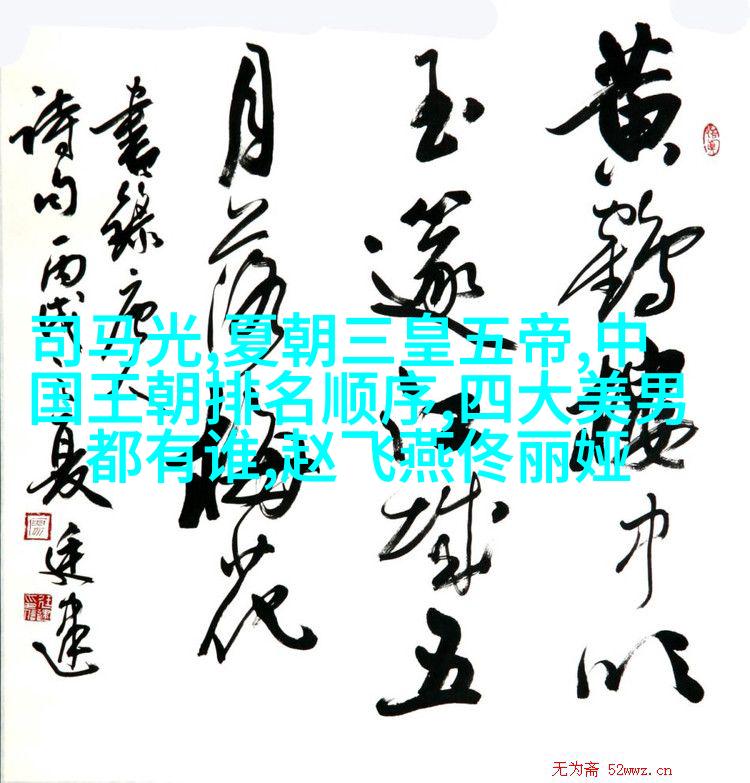 黄鶴樓中吹
玉篴江城五
月落梅花
書録唐人
詩句丙戌立夏
司马光,夏朝三皇五帝,中
国王朝排名顺序,四大美男
都有谁,赵飞燕佟丽娅
无为斋 52wwz.cn